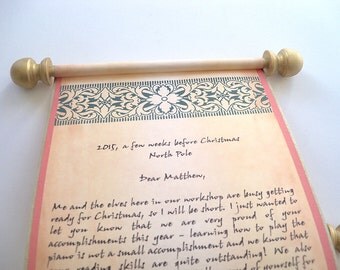 2015, a few weeks before Christmas
North Pole
Dear Matthew,
Me and the elves here in our workshop are busy getting
ready for Christmas, so I will be short. I just wanted to
let you know that we are very proud of your
accomplishments this year - learning how to play the
piano is not a small accomplishment and we know that
reading skills are quite outstanding! We also
of yourself for